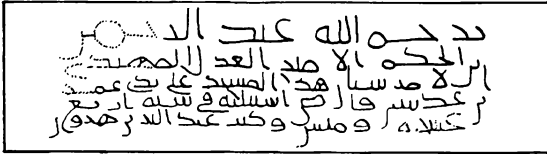 يرحم الله عبد الرحمن
ابن الحكم الامير العدل المهتدي
الامر ببنيان هذا المسجد على يدي عمر
بن عدبس قاضي اشبيلية في سنة اربع
ومئتين وكتب عبد البر بن هرون